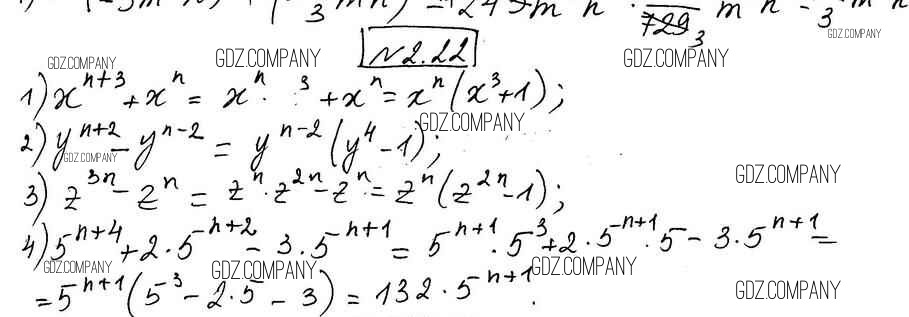 729 m n - 3
3
№2.22
1) x^{n+3} + x^n = x^n · ^3 + x^n = x^n (x^3 + 1);
2) y^{n+2} - y^{n-2} = y^{n-2} (y^4 - 1);
3) z^{3n} - z^n = z^n · z^{2n} - z^n = z^n (z^{2n} - 1);
4) 5^{n+4} + 2 · 5^{n+2} - 3 · 5^{n+1} = 5^{n+1} · 5^3 + 2 · 5^{n+1} · 5 - 3 · 5^{n+1} =
= 5^{n+1} (5^3 - 2 · 5 - 3) = 132 · 5^{n+1}.
GDZ.COMPANY
GDZ.COMPANY
GDZ.COMPANY
GDZ.COMPANY
GDZ.COMPANY
GDZ.COMPANY
GDZ.COMPANY
GDZ.COMPANY
GDZ.COMPANY
GDZ.COMPANY
GDZ.COMPANY